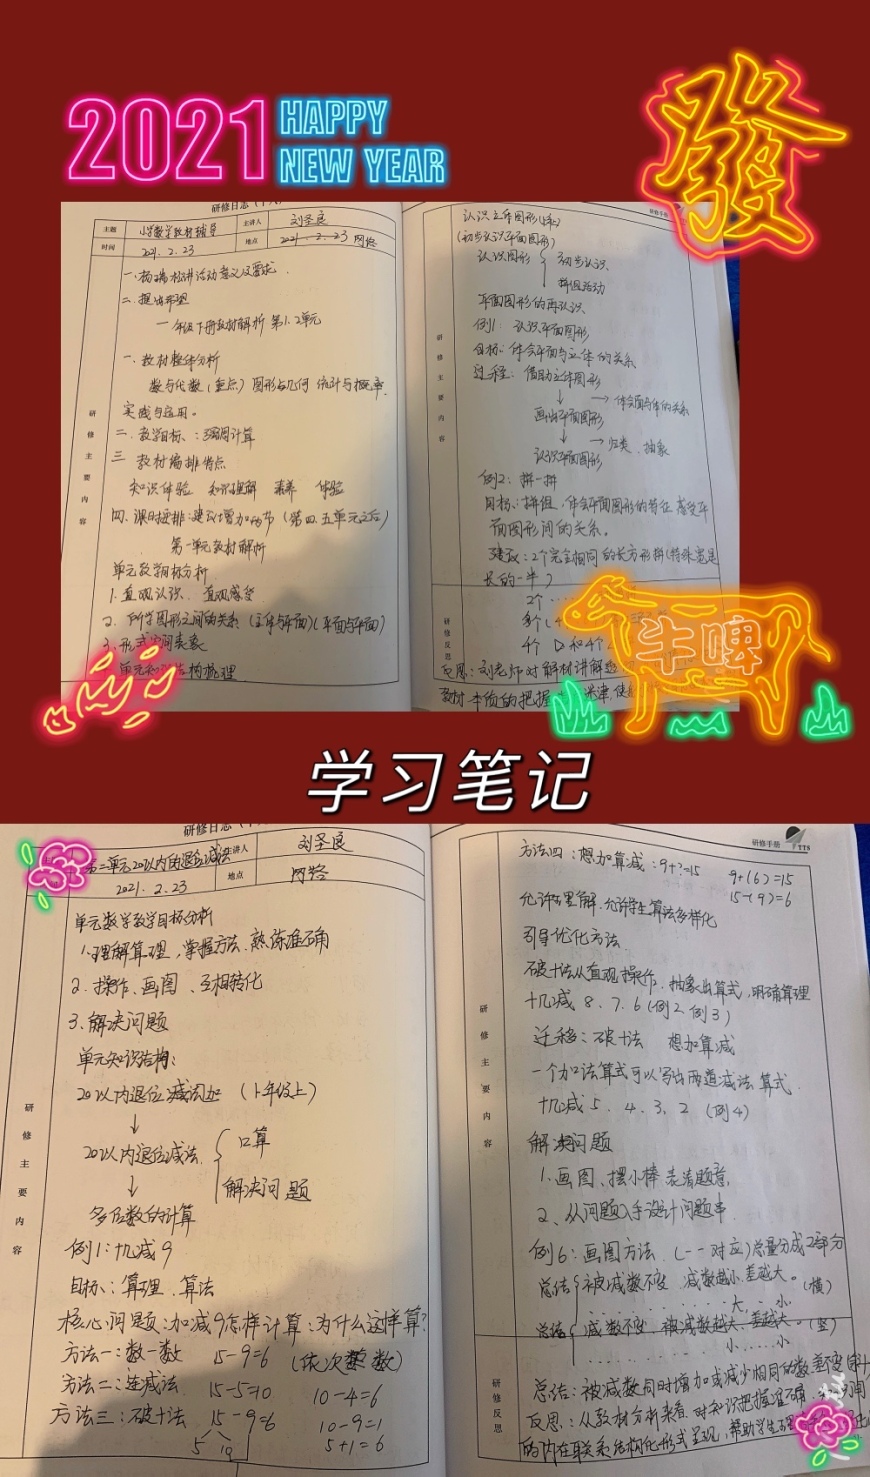 2021 HAPPY NEW YEAR
發
研修日志
研修手册
主题 小学数学教材辅导 主讲人 刘圣良
时间 2021.2.23 地点 2021.2.23 网络
二.
一年级下册教材解析 第1.2单元
一、教材整体分析
数与代数(重点) 图形与几何 统计与概率
实践与应用。
二、教学目标:强调计算
三 教材编排特点
知识体验 知识理解 素养 体验
四.课时安排:建议增加 (第四.五单元之后)
第一单元教材解析
单元教学目标分析
1.直观认识、直观感受
2. 所学图形之间的关系(立体与平面)(平面与平面)
3.
单元知识结构梳理
研修主要内容
认识立体图形(上)
(初步认识平面图形)
认识图形 { 初步认识
拼组活动
平面图形的再认识
例1: 认识平面图形
目标:体会平面与立体的关系
过程: 借助立体图形
↓ → 体会面与体的关系
画出平面图形
↓ → 归类、抽象
认识平面图形
例2: 拼一拼
目标:拼组,体会平面图形的特征,感受平
面图形间的关系。
建议:2个完全相同的长方形拼(特殊宽是
长的一半)
2个
4个
研修主要内容
研修反思
反思:刘老师对解材讲解
教材本质的把握
牛啤
学习笔记
研修日志
第二单元20以内的退位减法 主讲人 刘圣良
2021.2.23 地点 网络
单元数学教学目标分析
1.理解算理,掌握方法.熟练准确
2.操作、画图、互相转化
3.解决问题
单元知识结构:
20以内进位加 (一年级上)
↓
20以内退位减法 { 口算
解决问题
↓
多位数的计算
例1:十几减9
目标:算理.算法
核心问题:加减9怎样计算:为什么这样算?
方法一:数一数 15-9=6 (依次数数)
方法二:连减法 15-5=10 10-4=6
方法三:破十法 15-9=6 10-9=1
5 10 5+1=6
研修主要内容
研修手册 TTS
方法四:想加算减:9+?=15 9+(6)=15
15-(9)=6
允许不理解.允许学生算法多样化
引导优化方法
破十法从直观操作,抽象出算式,明确算理
十几减8、7、6(例2 例3)
迁移:破十法 想加算减
一个加法算式可以写出两道减法算式.
十几减5、4、3、2 (例4)
解决问题
1.画图、摆小棒 弄清题意
2、从问题入手设计问题串
例6:画图方法 (一一对应)总量分成2部分
总结 { 被减数不变 减数越小.差越大。(横)
大 小
总结 { 减数不变 被减数越大、差越大。(竖)
小 小
总结:被减数同时增加或减少相同的数差不变
反思:从教材分析来看,对知识把握准确
的内在联系结构化形式呈现,帮助学生
研修主要内容
研修反思